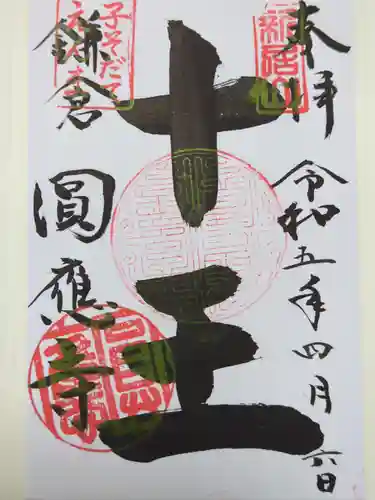 本拝
令和五年四月六日
十王
鎌倉
圓應寺
新居山
子そだて
えんま